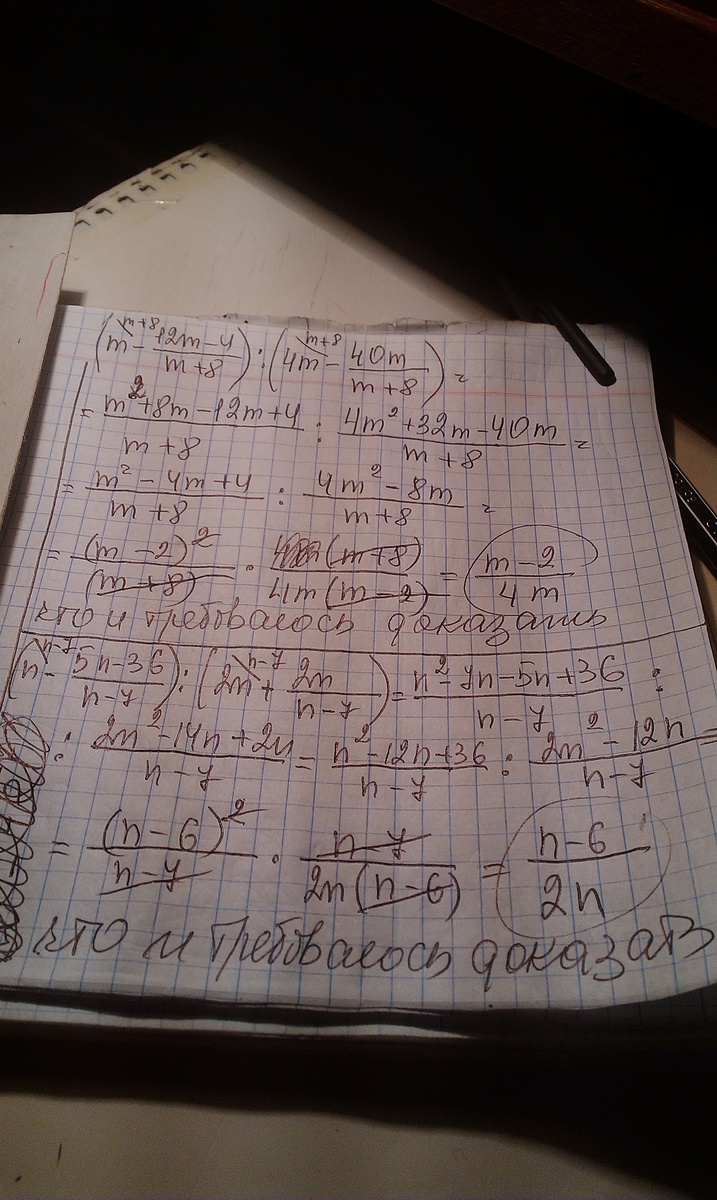 (m^{m+8} - \frac{12m-4}{m+8}) : (4m^{m+8} - \frac{40m}{m+8}) =
= \frac{m^2+8m-12m+4}{m+8} : \frac{4m^2+32m-40m}{m+8} =
= \frac{m^2-4m+4}{m+8} : \frac{4m^2-8m}{m+8} =
= \frac{(m-2)^2}{(m+8)} \cdot \frac{(m+8)}{4m(m-2)} = \frac{m-2}{4m}
что и требовалось доказать
(n^{n-7} - \frac{5n-36}{n-7}) : (2n^{n-7} + \frac{2n}{n-7}) = \frac{n^2-7n-5n+36}{n-7} :
: \frac{2n^2-14n+2n}{n-7} = \frac{n^2-12n+36}{n-7} : \frac{2n^2-12n}{n-7} =
= \frac{(n-6)^2}{n-7} \cdot \frac{n-7}{2n(n-6)} = \frac{n-6}{2n}
что и требовалось доказать